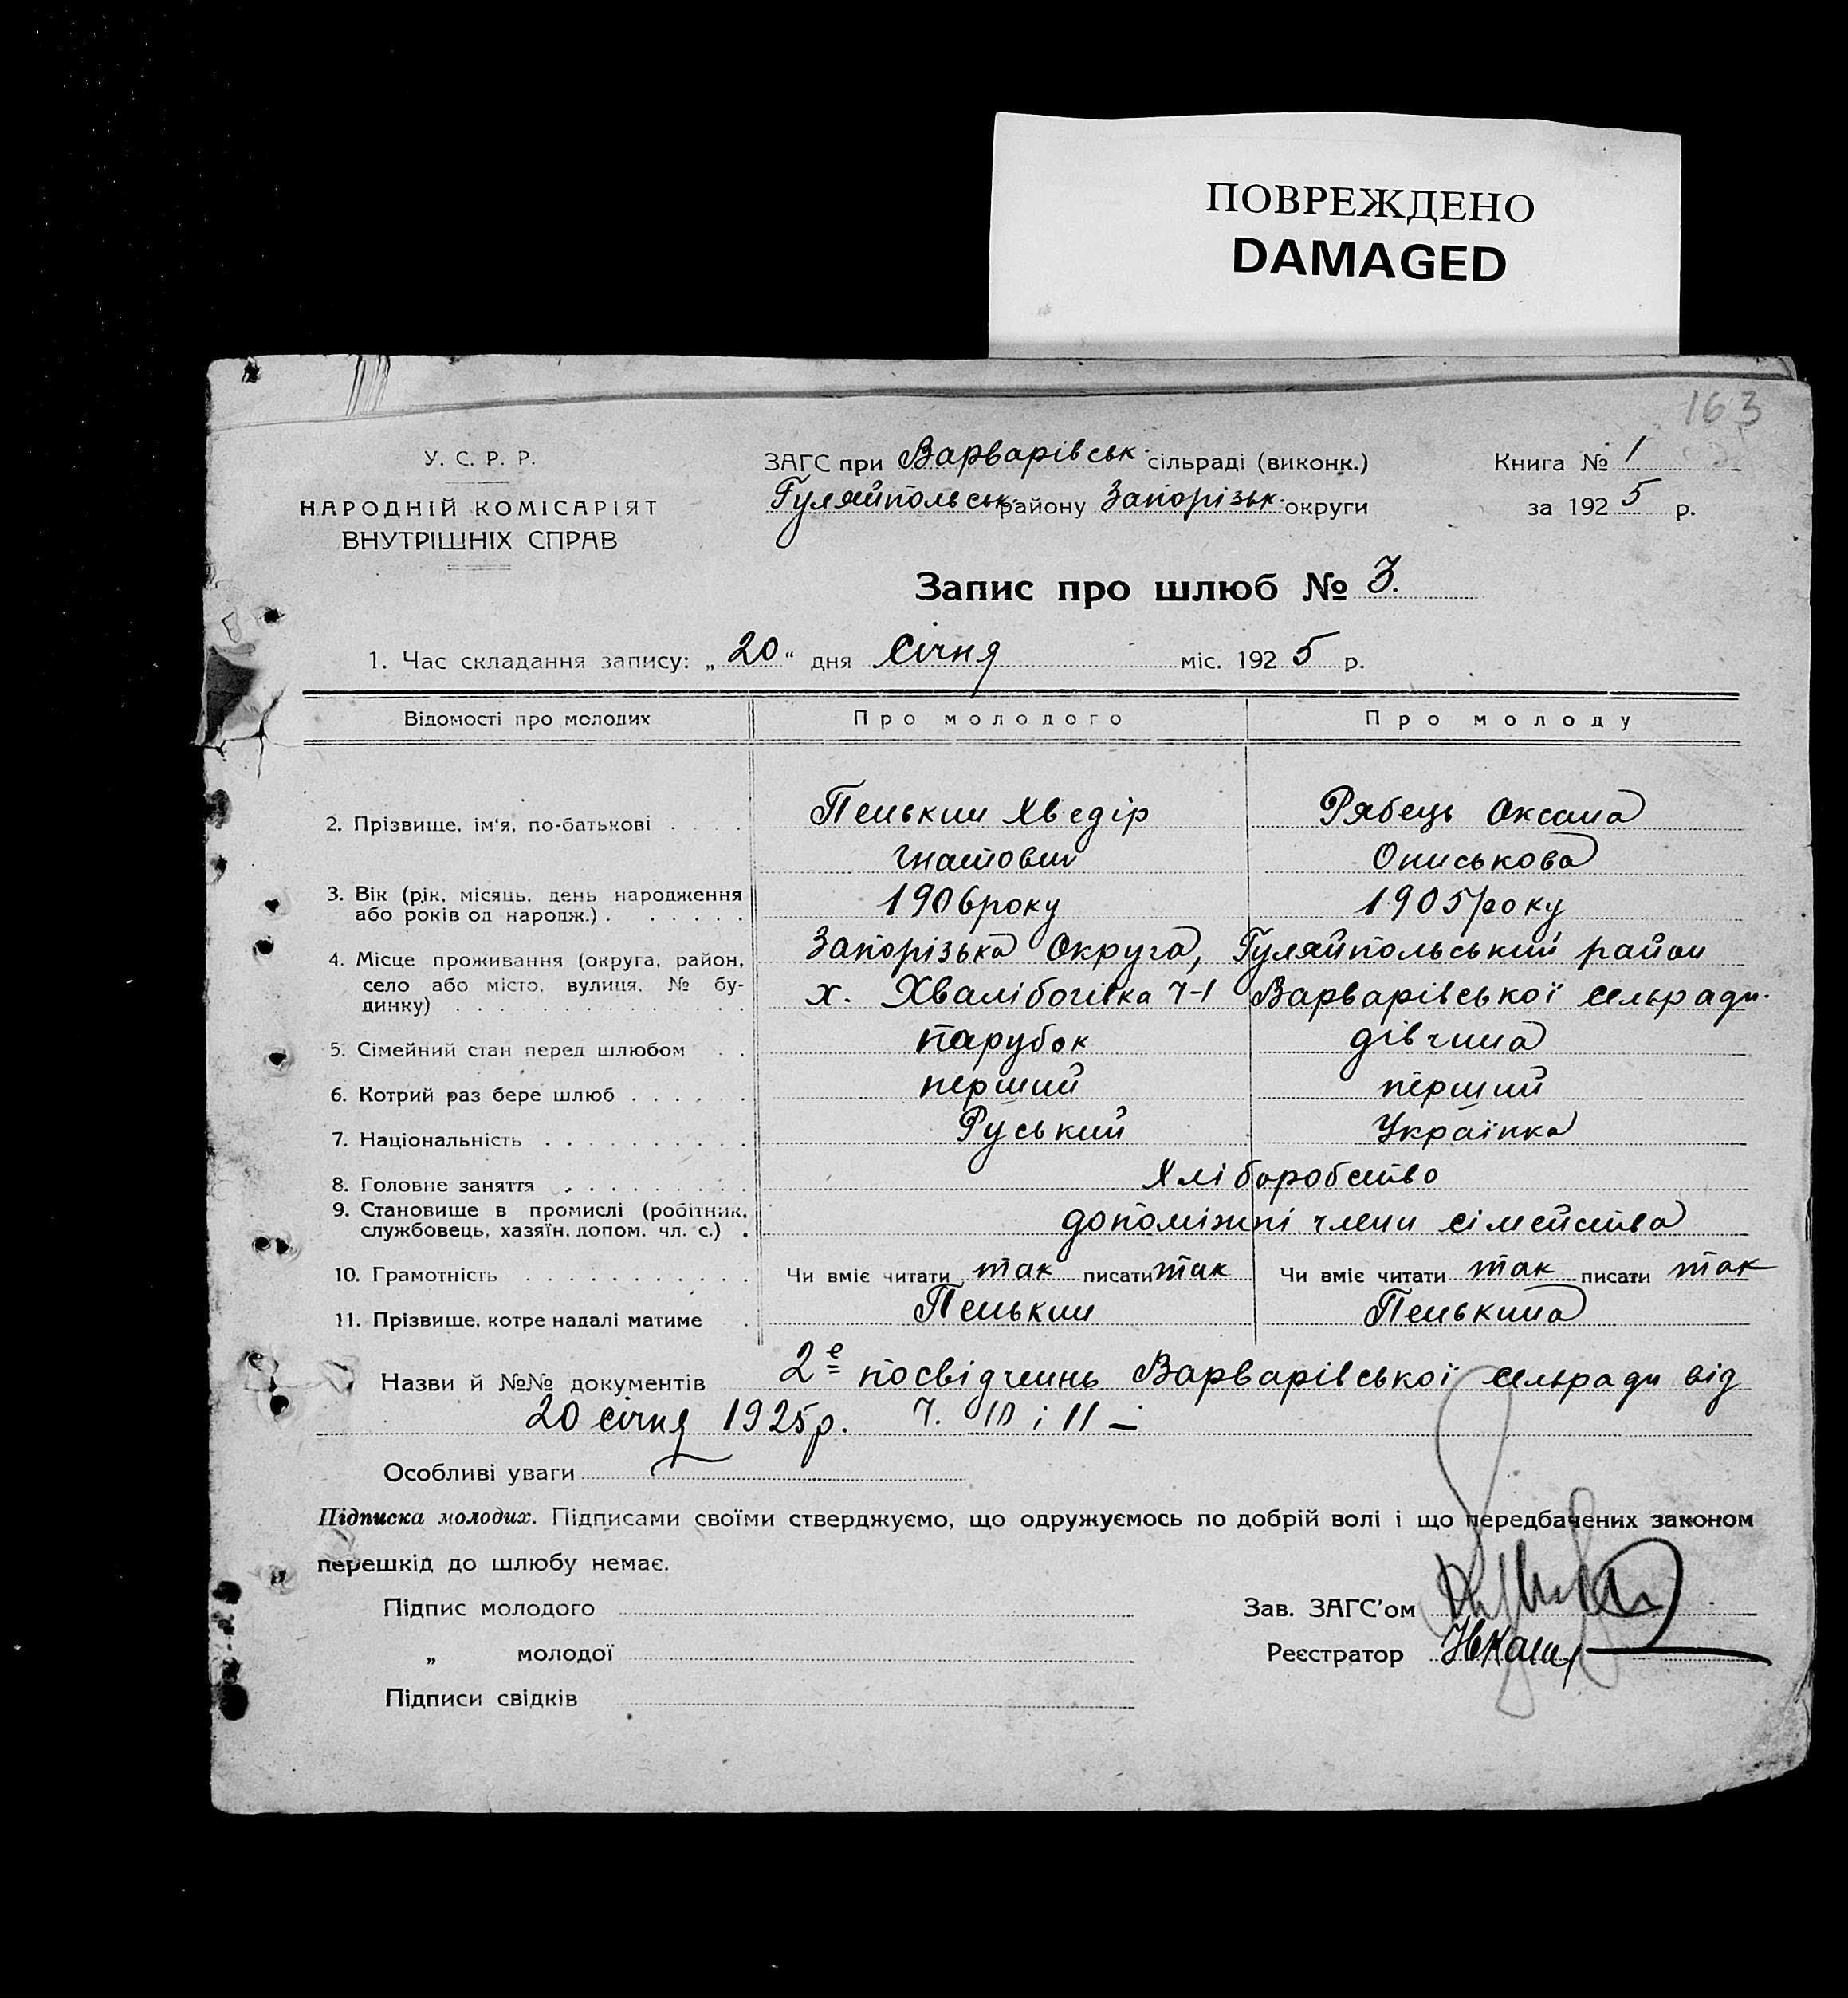 ПОВРЕЖДЕНО
DAMAGED
163
У. С. Р. Р.
НАРОДНІЙ КОМІСАРІЯТ
ВНУТРІШНІХ СПРАВ
ЗАГС при Варварівськ. сільраді (виконк.)
Гуляйпольськ. району Запорізьк. округи
Книга № 1
за 1925 р.
Запис про шлюб № 3.
1. Час складання запису: „20“ дня Січня міс. 1925 р.
Відомості про молодих Про молодого Про молоду
2. Прізвище, ім'я, по-батькові . . . . Пенькин Хведір Рябець Оксана
Гнатович Ониськова
3. Вік (рік, місяць, день народження або років од народж.) . . . . . . 1906 року 1905 року
4. Місце проживання (округа, район, село або місто, вулиця, № будинку) . . . . . . . . . . . . . Запорізька Округа, Гуляйпольський район
х. Хвалібогівка Ч-1 Варварівської сельради.
5. Сімейний стан перед шлюбом . . парубок дівчина
6. Котрий раз бере шлюб . . . . . перший перший
7. Національність . . . . . . . . . Руський Українка
8. Головне заняття . . . . . . . . Хліборобство
9. Становище в промислі (робітник, службовець, хазяїн, допом. чл. с.) . допоміжні члени сімейства
10. Грамотність . . . . . . . . . . Чи вміє читати так писати так Чи вміє читати так писати так
11. Прізвище, котре надалі матиме . Пенькин Пенькина
Назви й №№ документів 2е посвідчень Варварівської сельради від
20 січня 1925р. Ч. 10 і 11 —
Особливі уваги
Підписка молодих. Підписами своїми стверджуємо, що одружуємось по добрій волі і що передбачених законом
перешкід до шлюбу немає.
Підпис молодого
„ молодої
Підписи свідків
Зав. ЗАГС'ом
Реєстратор